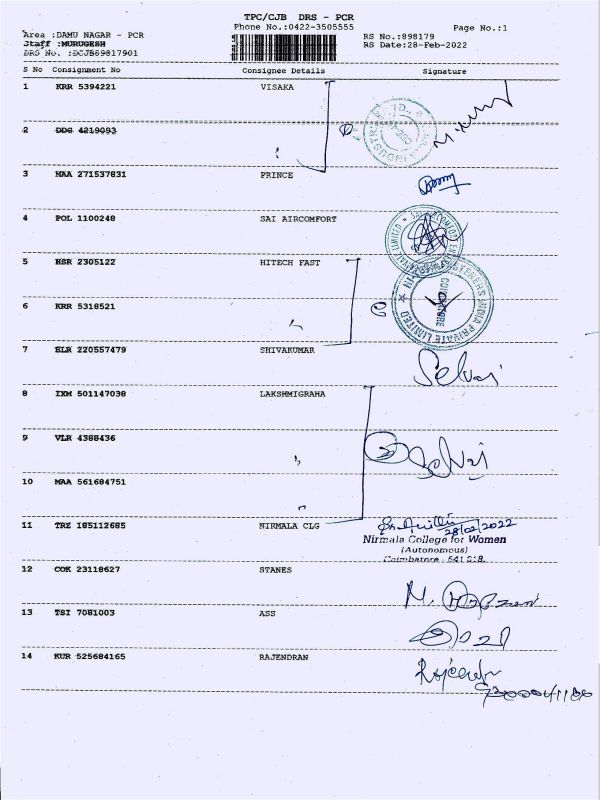 TPC/CJB DRS - PCR
Phone No.:0422-3505555
Page No.:1
Area :DAMU NAGAR - PCR
RS No.:898179
Staff :MURUGESH
RS Date:28-Feb-2022
DRS No. :DCJB89817901
S No Consignment No Consignee Details Signature
1 KRR 5394221 VISAKA
2 DDG 4219093
3 MAA 271537831 PRINCE
4 POL 1100248 SAI AIRCOMFORT
5 HSR 2305122 HITECH FAST
6 KRR 5318521
COIMBATORE
PRIVATE LIMITED
7 BLR 220557479 SHIVAKUMAR
Selvaj
8 IXM 501147038 LAKSHMIGRAHA
9 VLR 4388436
Selvaj
10 MAA 561684751
11 TRZ 185112685 NIRMALA CLG
28/02/2022
Nirmala College for Women
(Autonomous)
Coimbatore - 641 018.
12 COK 23118627 STANES
13 TSI 7081003 ASS
14 KUR 525684165 RAJENDRAN